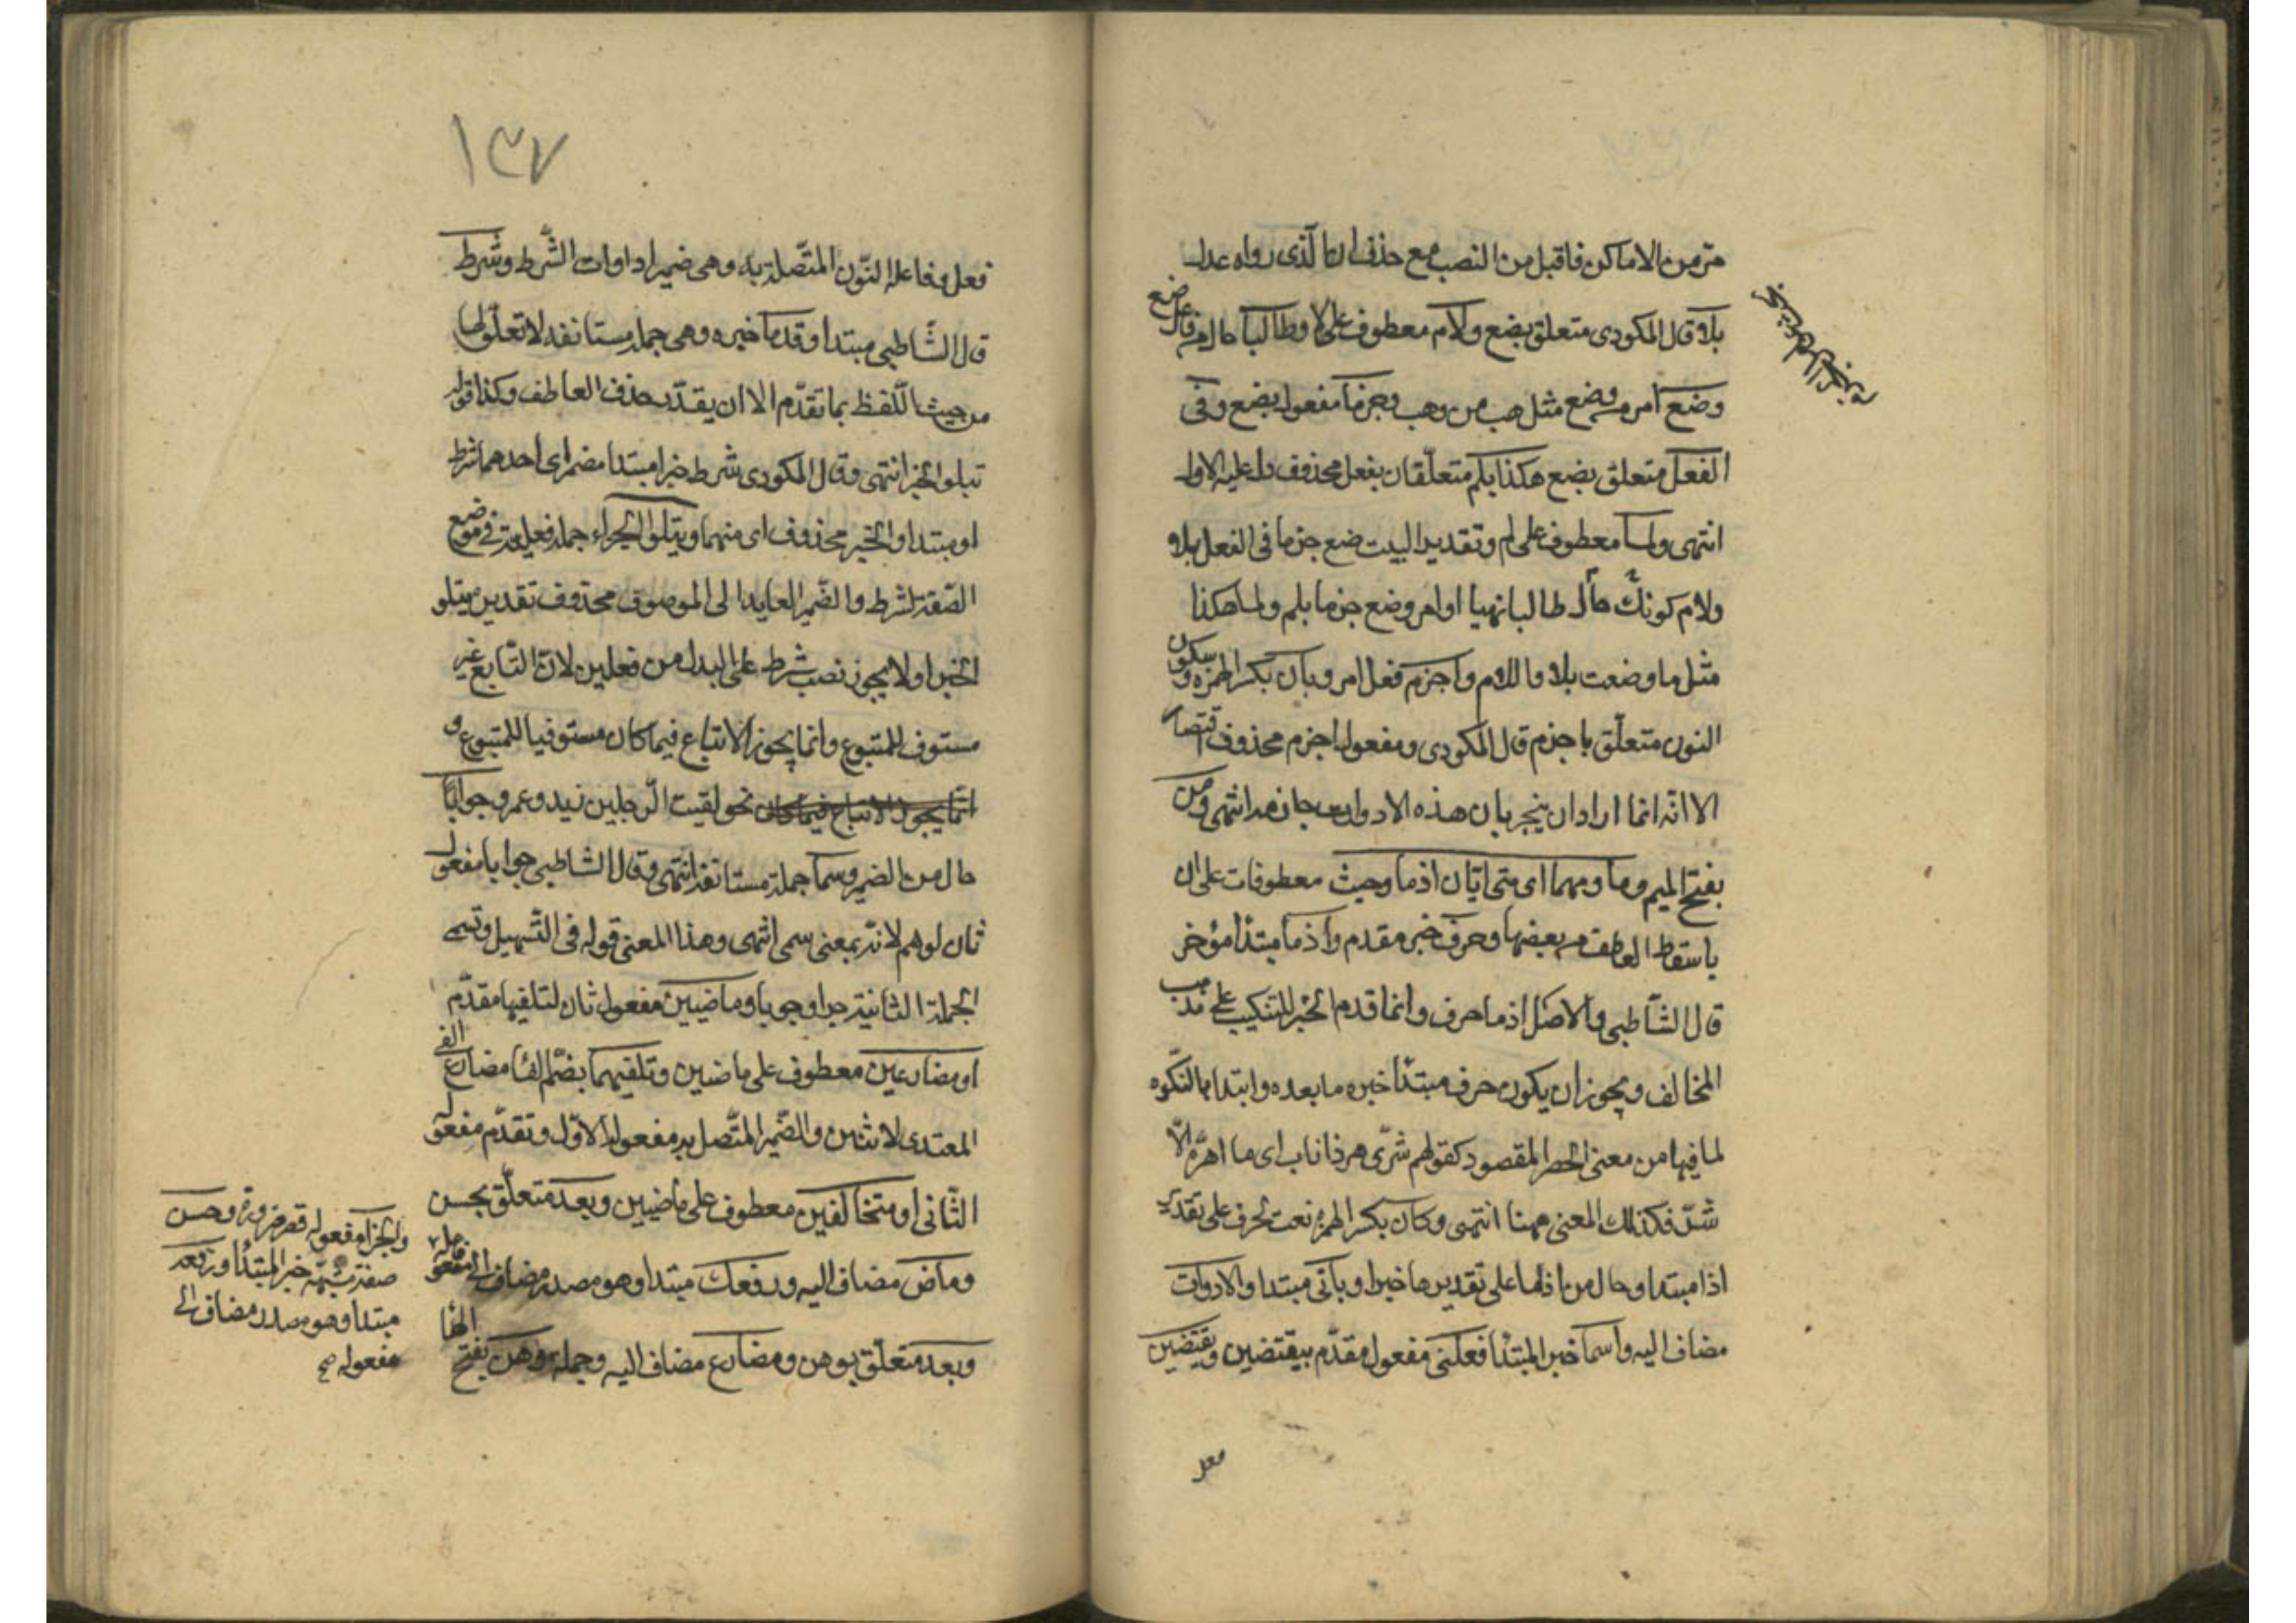 مرّ من الاماكن فاقبل من النصب مع حذف ان ما الذى رواه عدل
بلا قال المكودى متعلق بضع ولام معطوف على لا وطالبا حال من فاعل ضع
وضع امر من وضع مثل هب من وهب وجزما مفعول بضع وفى
الفعل متعلق بضع هكذا بلم متعلّقان بفعل محذوف دل عليه الاول
انتهى ولما معطوف على لم وتقدير البيت ضع جزما فى الفعل بلا و
ولام كونك حال طالبا نهيا او امر وضع جزما بلم ولما هكذا
مثل ما وضعت بلا واللام واجزم فعل امر وبان بكسر الهمزه وسكون
النون متعلّق باجزم قال المكودى ومفعول اجزم محذوف اقتصارا
الا انّه انما اراد ان يخبر بان هذه الادوات جازمه انتهى ومن
بفتح الميم وما ومهما اى متى ايّان اذما وحيث معطوفات على ان
باسقاط العاطف من بعضها وحرف خبر مقدم واذما مبتدأ مؤخر
قال الشاطبى والاصل اذما حرف وانما قدم الخبر للتنكيب على مذهب
المخالف ويجوز ان يكون حرف مبتدأ خبره ما بعده وابتدا بالنكره
لما فيها من معنى الحصر المقصود كقولهم شرّ اهر ذا ناب اى ما اهرّه الّا
شرّ فكذلك المعنى ههنا انتهى وكان بكسر الهمزه نعت لحرف على تقدير
اذما مبتدا وحال من اذما على تقديرها خبرا وباقى مبتدا والادوات
مضاف اليه واسما خبر المبتدأ فعلين مفعول مقدّم بيقتضين ويقتضين
فعل
١٣٧
فعل وفاعله النّون المتّصلة به وهى ضمير ادوات الشّرط وشرط
قال الشّاطبى مبتدا وقدّما خبره وهى جملة مستانفه لا تعلّق لها
من حيث اللّفظ بما تقدّم الا ان يقدّر حذف العاطف وكذا قوله
يتلو الجزا انتهى وقال المكودى شرط خبر مبتدا مضمر اى احدهما شرط
او مبتدا والخبر محذوف اى منهما ويتلو الجزاء جملة فعليه فى موضع
الصّفة لشرط والضّمير العايد الى الموصوف محذوف تقديره يتلو
الجزا ولا يجوز نصب شرط على البدل من فعلين لانّ التّابع غير
مستوف للمتبوع وانما يجوز الاتباع فيما كان مستوفيا للمتبوع و
انّما يجوز الاتباع فيما كان نحو لقيت الرّجلين زيد وعمر وجوابًا
حال من الضمير وسما جملة مستانفة انتهى وقال الشاطبى جوابا مفعول
ثان لوهم لانّه بمعنى سمى انتهى وهذا المعنى قوله فى التّسهيل وتسمى
الجملة الثانية جزا وجوبا وماضيين مفعول ثان لتلفيهما مقدّم
او مضارعين معطوف على ماضيين وتلفيهما بضمّ التّا مضارع الفى
المعتدى لاثنين والضّمير المتّصل به مفعوله الاوّل وتقدّم مفعوله
الثّانى او متخالفين معطوف على ماضيين وبعد متعلّق بحسن
وماض مضاف اليه ورفعك مبتدا وهو مصدر مضاف الى فاعله
وبعد متعلّق بوهن ومضارع مضاف اليه وجملة وهن بفتح الها
والجزا مفعوله قصر ضرورة وحسن
صفة مشبّهة خبر المبتدأ ورفعه
مبتدا وهو مصدر مضاف الى
مفعوله صح